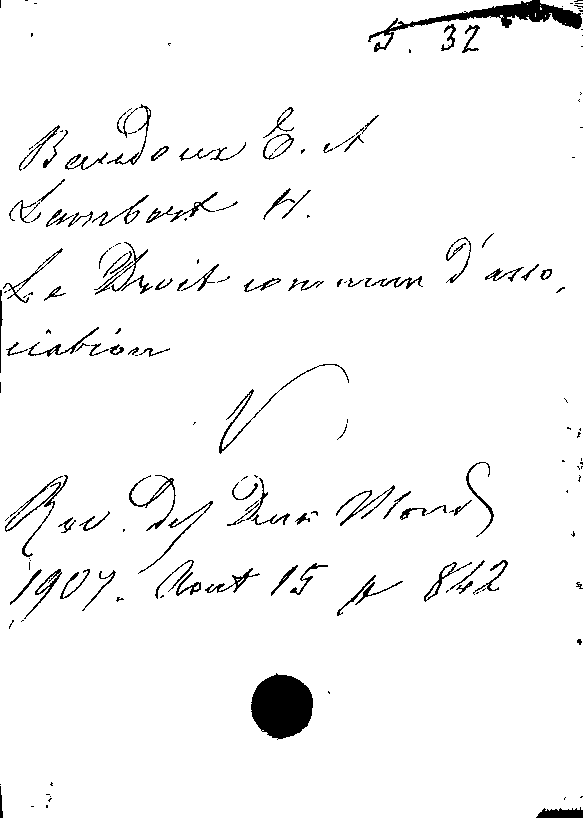 5. 32
Baudoux E. et
Lambert H.
Le Droit commun d'asso,
ciation
V
Rev. des Deux Mond
1907. Aout 15 p 842